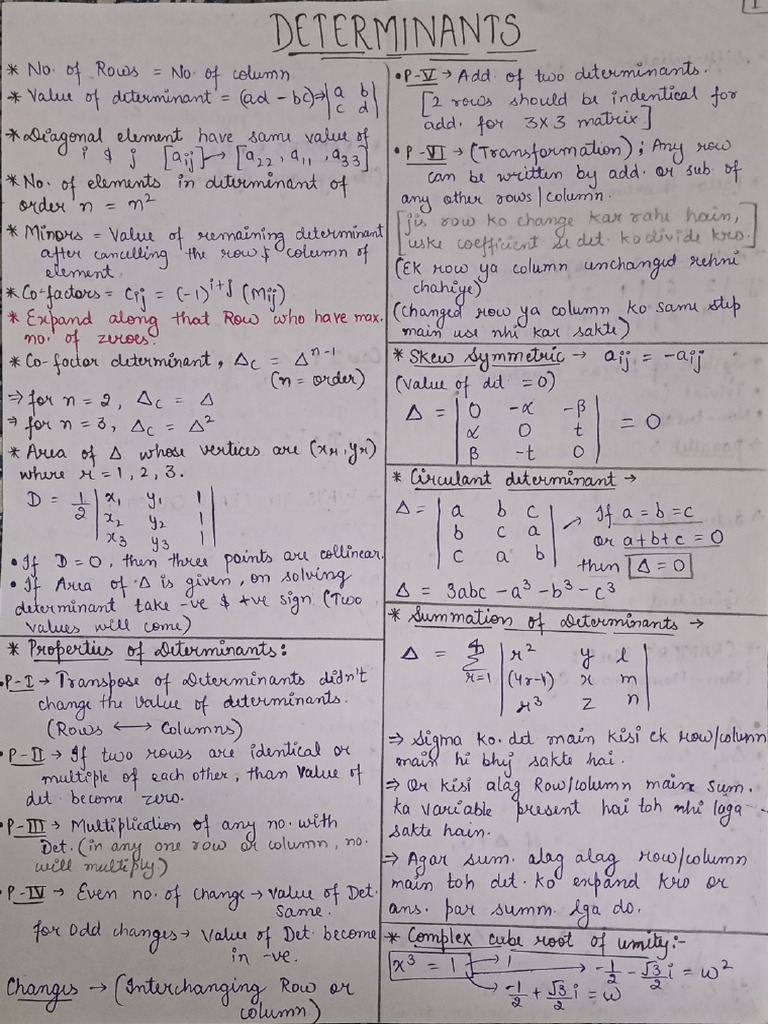 1
DETERMINANTS
* No. of Rows = No. of column
* Value of determinant = (ad - bc) ⇒ |a b|
|c d|
* Diagonal element have same value of
i & j [aij] → [a22, a11, a33]
* No. of elements in determinant of
order n = n²
* Minors = Value of remaining determinant
after cancelling the row & column of
element.
* Co-factors = Cij = (-1)^i+j (Mij)
* Expand along that Row who have max.
no. of zeroes.
* Co-factor determinant, Δc = Δ^n-1
(n = order)
⇒ for n = 2, Δc = Δ
⇒ for n = 3, Δc = Δ²
* Area of Δ whose vertices are (xr, yr)
where r = 1, 2, 3.
D = 1/2 |x1 y1 1|
|x2 y2 1|
|x3 y3 1|
• If D = 0, then three points are collinear.
• If Area of Δ is given, on solving
determinant take -ve & +ve sign (Two
values will come)
* Properties of Determinants:
• P-I → Transpose of Determinants didn't
change the value of determinants.
(Rows ↔ Columns)
• P-II → If two rows are identical or
multiple of each other, than value of
det. become zero.
• P-III → Multiplication of any no. with
Det. (in any one row or column, no.
will multiply)
• P-IV → Even no. of change → value of Det.
same.
for Odd changes → Value of Det. become
in -ve.
Changes → (Interchanging Row or
column)
• P-V → Add. of two determinants.
[2 rows should be indentical for
add. for 3x3 matrix]
• P-VI → (Transformation); Any row
can be written by add. or sub. of
any other rows/column.
[jis row ko change kar rahe hain,
uske coefficient se det. ko divide kro.]
(Ek row ya column unchanged rehni
chahiye)
(Changed row ya column ko same step
main use nhi kar sakte)
* Skew Symmetric → aij = -aij
(Value of det = 0)
Δ = |0 -α -β|
|α 0 t| = 0
|β -t 0|
* Circulant determinant →
Δ = |a b c| → If a = b = c
|b c a| or a+b+c = 0
|c a b| then Δ = 0
Δ = 3abc - a³ - b³ - c³
* Summation of Determinants →
Δ = Σ r=1 |r² y l|
|(4r-1) x m|
|r³ z n|
⇒ Sigma ko det main kisi ek row/column
main hi bhij sakte hai.
⇒ Or kisi alag Row/column main sum.
ka variable present hai toh nhi laga
sakte hain.
⇒ Agar sum. alag alag row/column
main toh det. ko expand kro or
ans. par summ. lga do.
* Complex cube root of unity:-
x³ = 1 → 1
→ -1/2 - √3/2 i = w²
→ -1/2 + √3/2 i = w